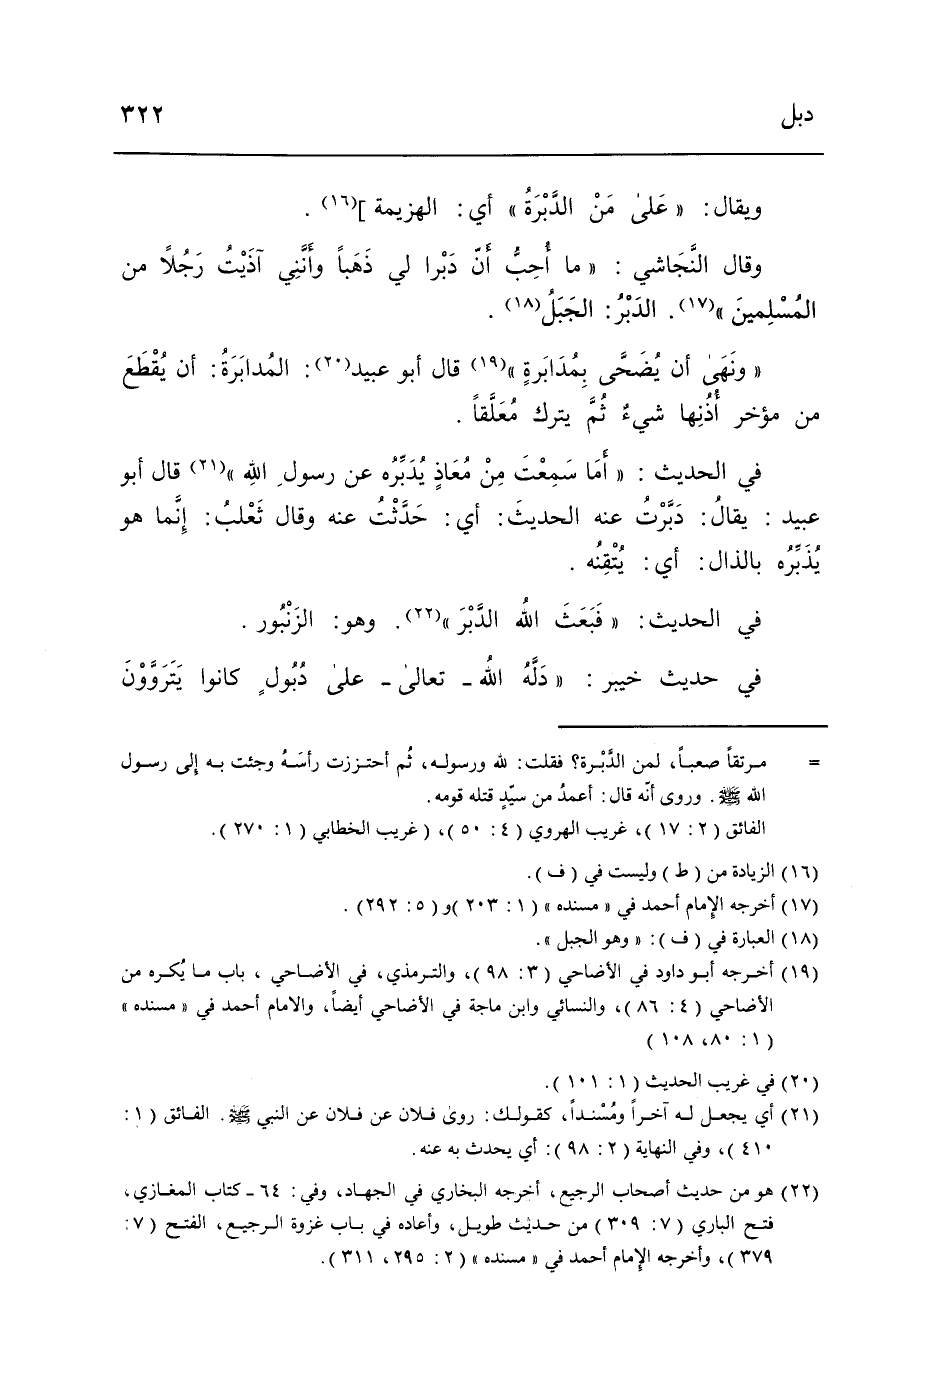 دبل ٣٢٢
ويقال: « عَلىٰ مَنْ الدَّبْرَةُ » أي: الهزيمة ](١٦) .
وقال النَّجَاشي : « ما أُحِبُّ أَنّ دَبْرا لي ذَهَباً وأَنَّنِي آذَيْتُ رَجُلًا من
المُسْلِمينَ »(١٧). الدَبْرُ: الجَبَلُ(١٨) .
« ونَهَىٰ أن يُضَحَّى بِمُدَابَرةٍ »(١٩) قال أبو عبيد(٢٠): المُدابَرَةُ: أن يُقْطَعَ
من مؤخر أُذُنِها شيءٌ ثُمَّ يترك مُعَلَّقاً .
في الحديث : « أَمَا سَمِعْتَ مِنْ مُعَاذٍ يُدَبِّرُه عن رسولِ الله »(٢١) قال أبو
عبيد : يقالُ: دَبَّرْتُ عنه الحديثَ: أي: حَدَّثْتُ عنه وقال ثَعْلبُ: إِنَّما هو
يُذَبِّرُه بالذال: أي: يُتْقِنُه .
في الحديث: « فَبَعَثَ اللهُ الدَّبْرَ »(٢٢). وهو: الزَنْبُور .
في حديث خيبر : « دَلَّهُ اللهُ ـ تعالىٰ ـ علىٰ دُبُولٍ كانوا يَتَرَوَّوْنَ
= مرتقاً صعباً، لمن الدَّبْرة؟ فقلت: لله ورسوله، ثُم أحتززت رأسَهُ وجئت به إلى رسول
الله ﷺ. وروى أنّه قال: أعمدُ من سيّدٍ قتله قومه.
الفائق ( ٢ : ١٧ )، غريب الهروي ( ٤ : ٥٠ )، ( غريب الخطابي ( ١ : ٢٧٠ ).
(١٦) الزيادة من ( ط ) وليست في ( ف ).
(١٧) أخرجه الإمام أحمد في « مسنده » ( ١ : ٢٠٣ )و ( ٥ : ٢٩٢ ) .
(١٨) العبارة في ( ف ): « وهو الجبل ».
(١٩) أخرجه أبو داود في الأضاحي ( ٣ : ٩٨ )، والترمذي، في الأضاحي ، باب ما يُكره من
الأضاحي ( ٤ : ٨٦ )، والنسائي وابن ماجة في الأضاحي أيضاً، والامام أحمد في « مسنده »
( ١ : ٨٠، ١٠٨ )
(٢٠) في غريب الحديث ( ١ : ١٠١ ).
(٢١) أي يجعل له آخراً ومُسْنداً، كقولك: روى فلان عن فلان عن النبي ﷺ. الفائق ( ١ :
٤١٠ )، وفي النهاية ( ٢ : ٩٨ ): أي يحدث به عنه.
(٢٢) هو من حديث أصحاب الرجيع، أخرجه البخاري في الجهاد، وفي: ٦٤ ـ كتاب المغازي،
فتح الباري ( ٧ : ٣٠٩ ) من حديث طويل، وأعاده في باب غزوة الرجيع، الفتح ( ٧ :
٣٧٩ )، وأخرجه الإمام أحمد في « مسنده » ( ٢ : ٢٩٥، ٣١١ ).